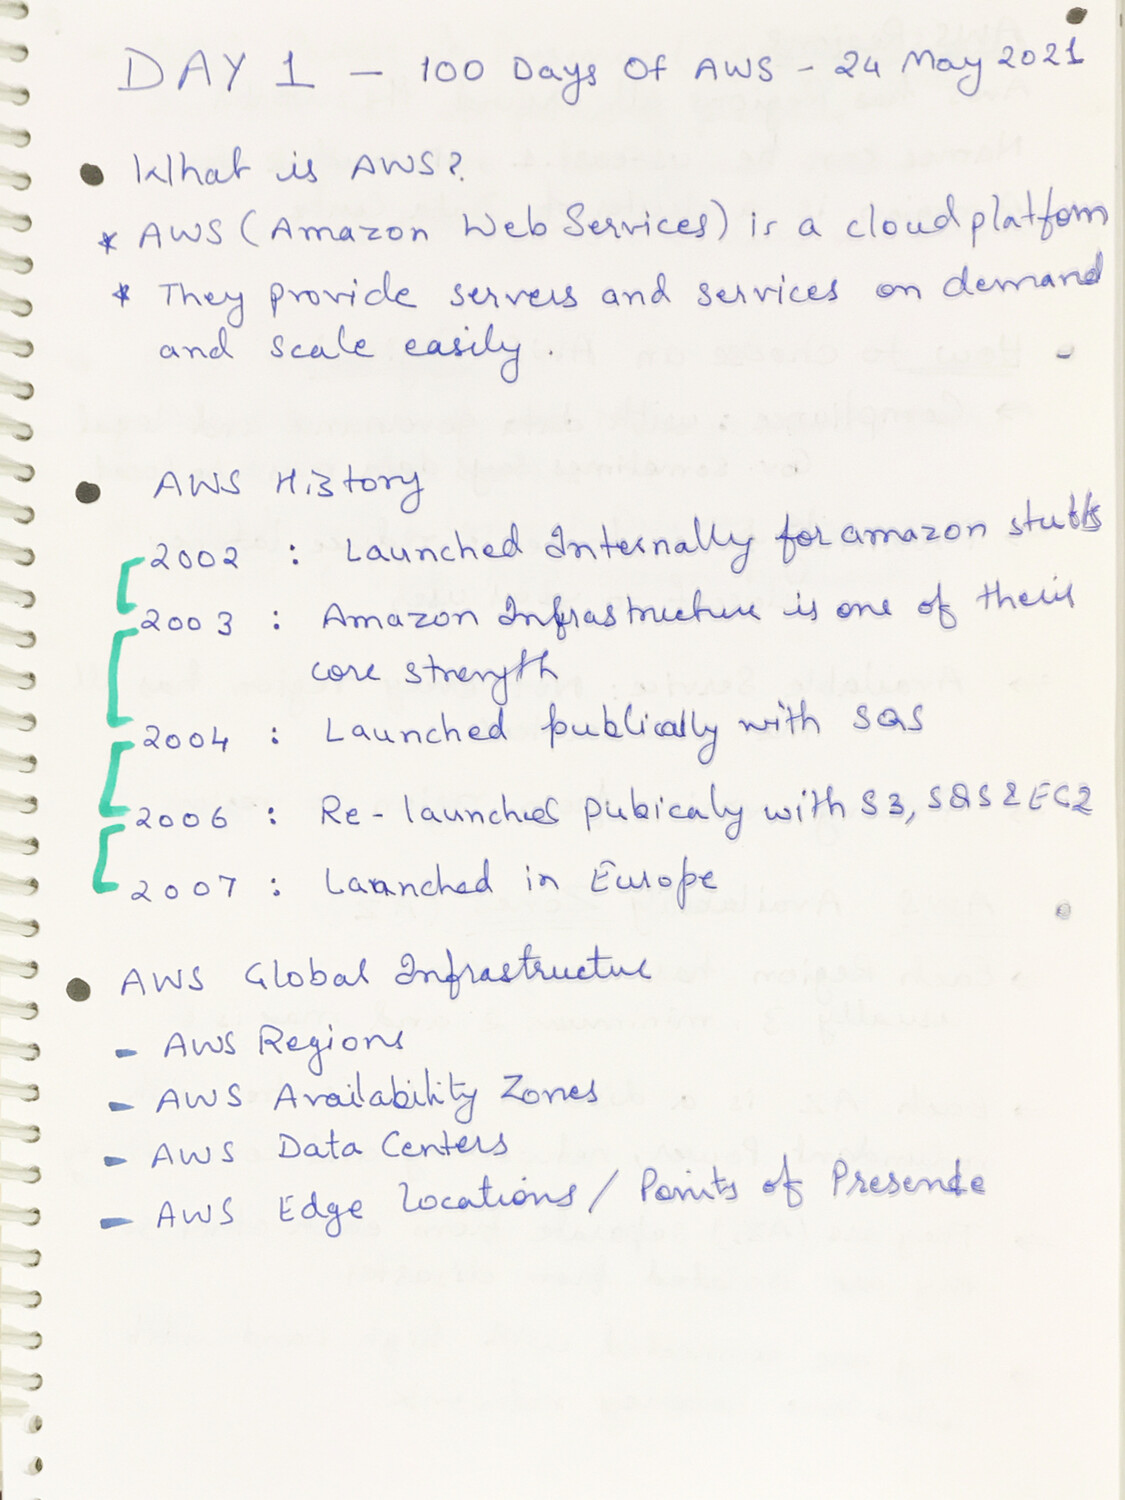 DAY 1 - 100 Days Of AWS - 24 May 2021
● What is AWS?
* AWS (Amazon Web Services) is a cloud platform
* They provide servers and services on demand
and scale easily.
● AWS History
2002 : Launched Internally for amazon stuffs
2003 : Amazon Infrastructure is one of their
core strength
2004 : Launched publically with SQS
2006 : Re-launched Pubicaly with S3, SQS & EC2
2007 : Launched in Europe
● AWS Global Infrastructure
- AWS Regions
- AWS Availability Zones
- AWS Data Centers
- AWS Edge Locations / Points of Presence